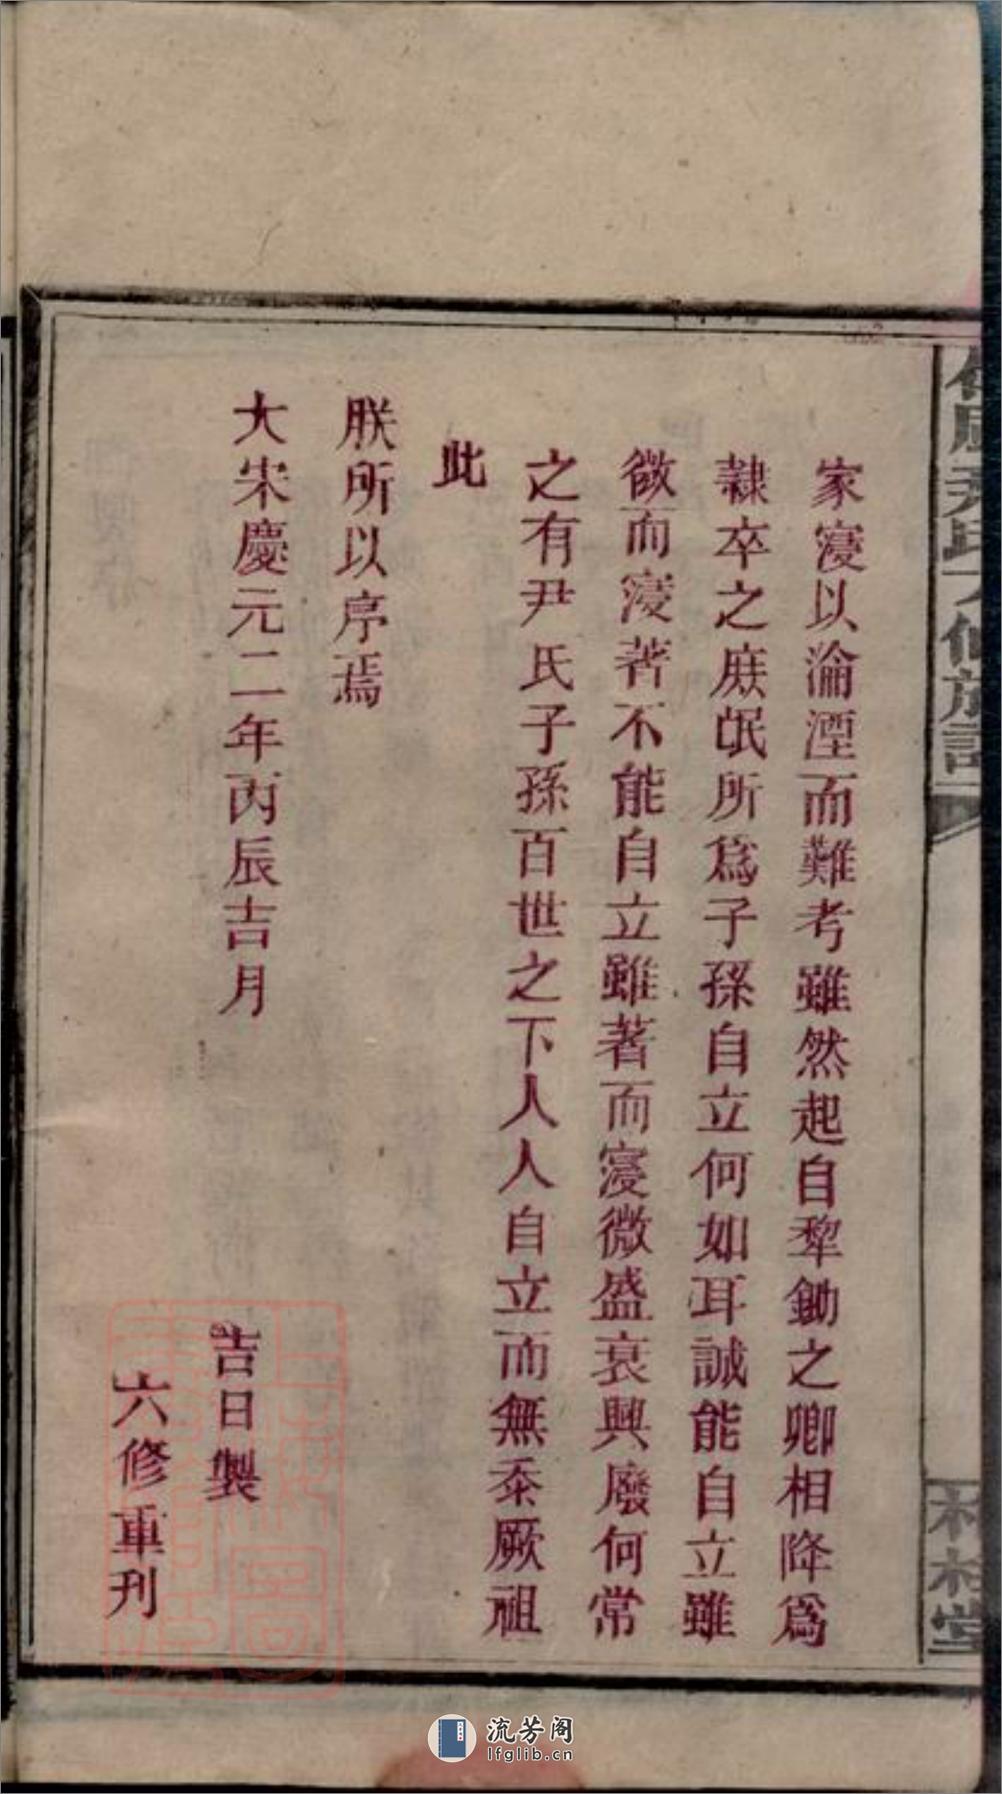 家寖以淪湮而難考雖然起自犂鋤之卿相降爲
隷卒之庶氓所爲子孫自立何如耳誠能自立雖
微而寖著不能自立雖著而寖微盛衰興廢何常
之有尹氏子孫百世之下人人自立而無忝厥祖
此
朕所以序焉
大宋慶元二年丙辰吉月
吉日製
六修重刊
尹氏六修族譜
桂堂
流芳阁
lfglib.cn